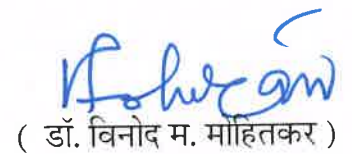 ( डॉ. विनोद म. मोहितकर )